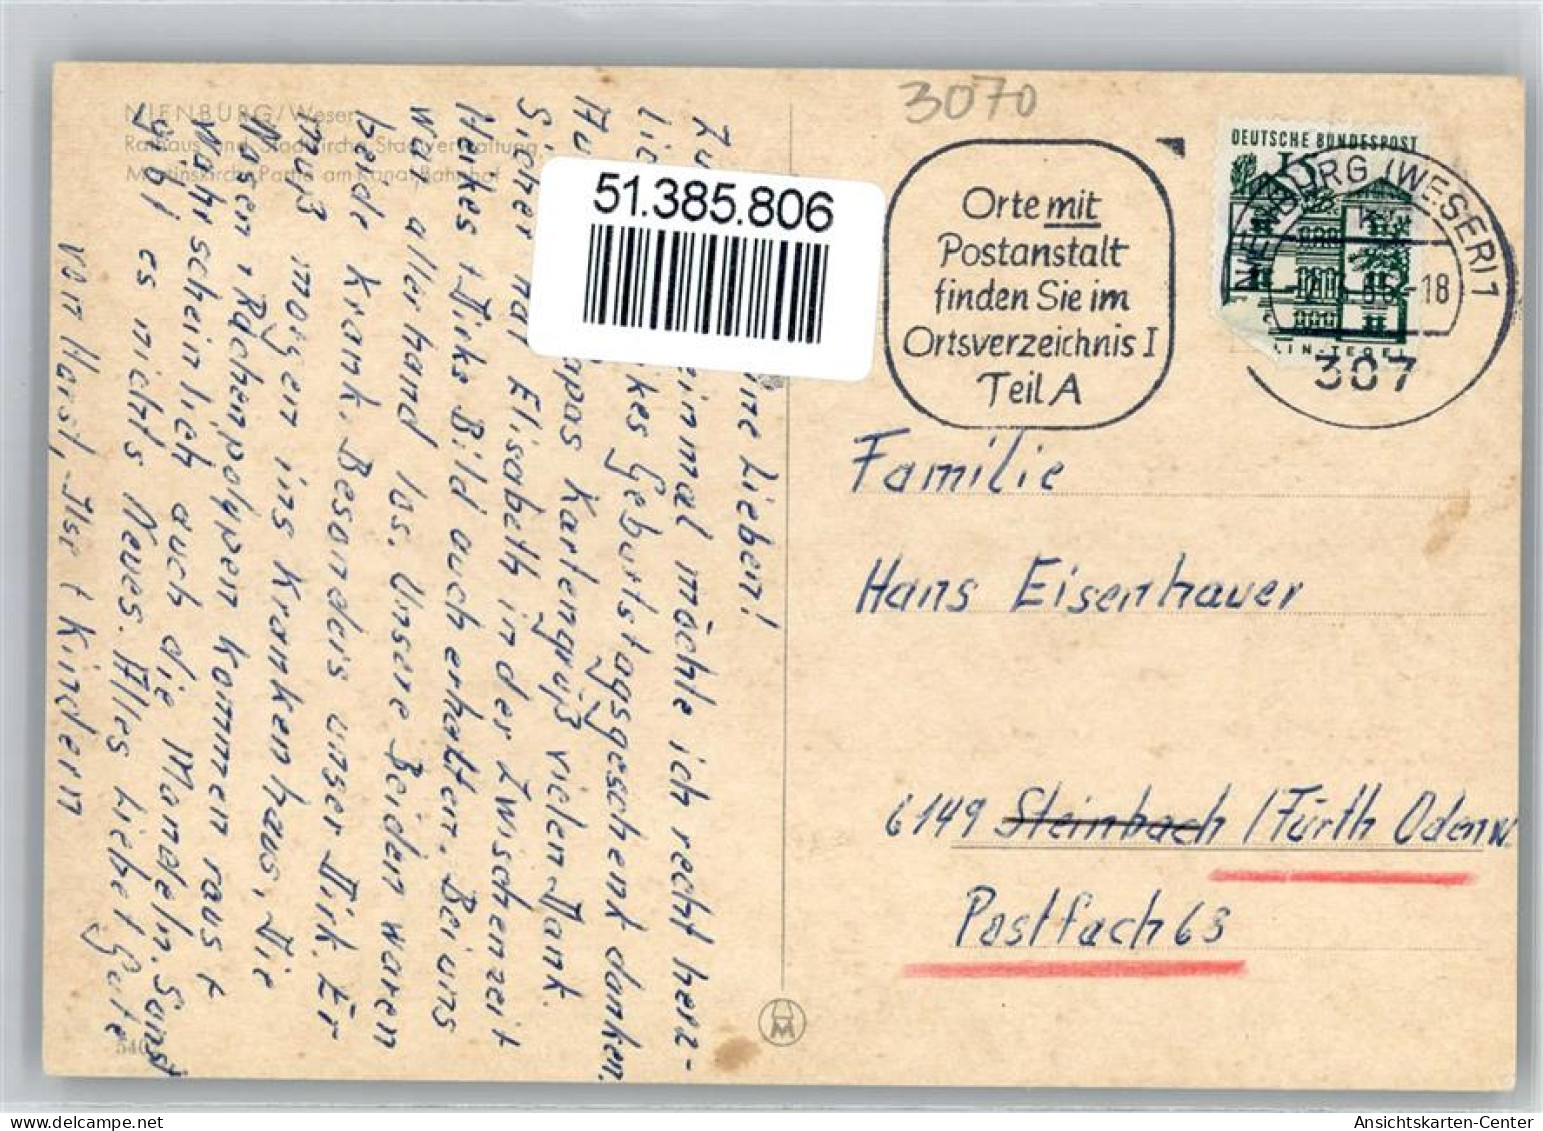 3070
NIENBURG/Weser
Rathaus und Stadtkirche, Stadtverwaltung,
Martinskirche, Partie am Kanal, Bahnhof
51.385.806
Orte mit
Postanstalt
finden Sie im
Ortsverzeichnis I
Teil A
DEUTSCHE BUNDESPOST
15
NIENBURG (WESER) 1
-18
307
Lieben!
einmal möchte ich recht herz-
kes Geburtstagsgeschenk danken.
apas Kartengrüß vielen Dank.
Sicher hat Elisabeth in der Zwischenzeit
Heikes + Dirks Bild auch erhalten. Bei uns
war allerhand los. Unsere Beiden waren
beide krank. Besonders unser Dirk. Er
muß morgen ins Krankenhaus. Die
Nasen + Rachenpolypen kommen raus +
Wahrscheinlich auch die Mandeln. Sonst
gibt es nichts Neues. Alles Liebe + Gute
von Horst, Ilse + Kindern
Familie
Hans Eisenhauer
6149 Steinbach /Fürth Odenw.
Postfach 63
540
Ansichtskarten-Center